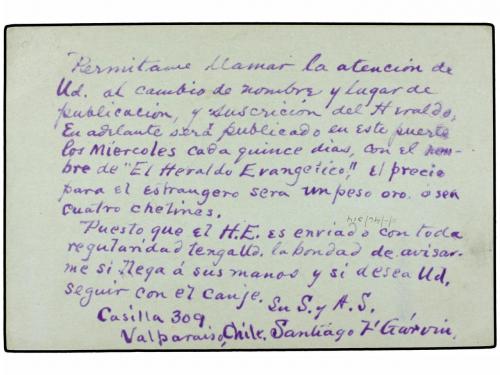 Permitame llamar la atención de
Ud. al cambio de nombre y lugar de
publicación, y suscrición del Heraldo,
En adelante será publicado en este puerto
los Miercoles cada quince dias, con el nom-
bre de "El Heraldo Evangetico!" El precio
para el estrangero sera un peso oro. ó sea
cuatro chelines.
Puesto que el H.E. es enviado con toda
regularidad tenga Ud. la bondad de avisar-
me si llega á sus manos y si desea Ud.
seguir con el canje. Su S. y A. S.
Casilla 309
Valparaiso, Chile. Santiago F Garvin,